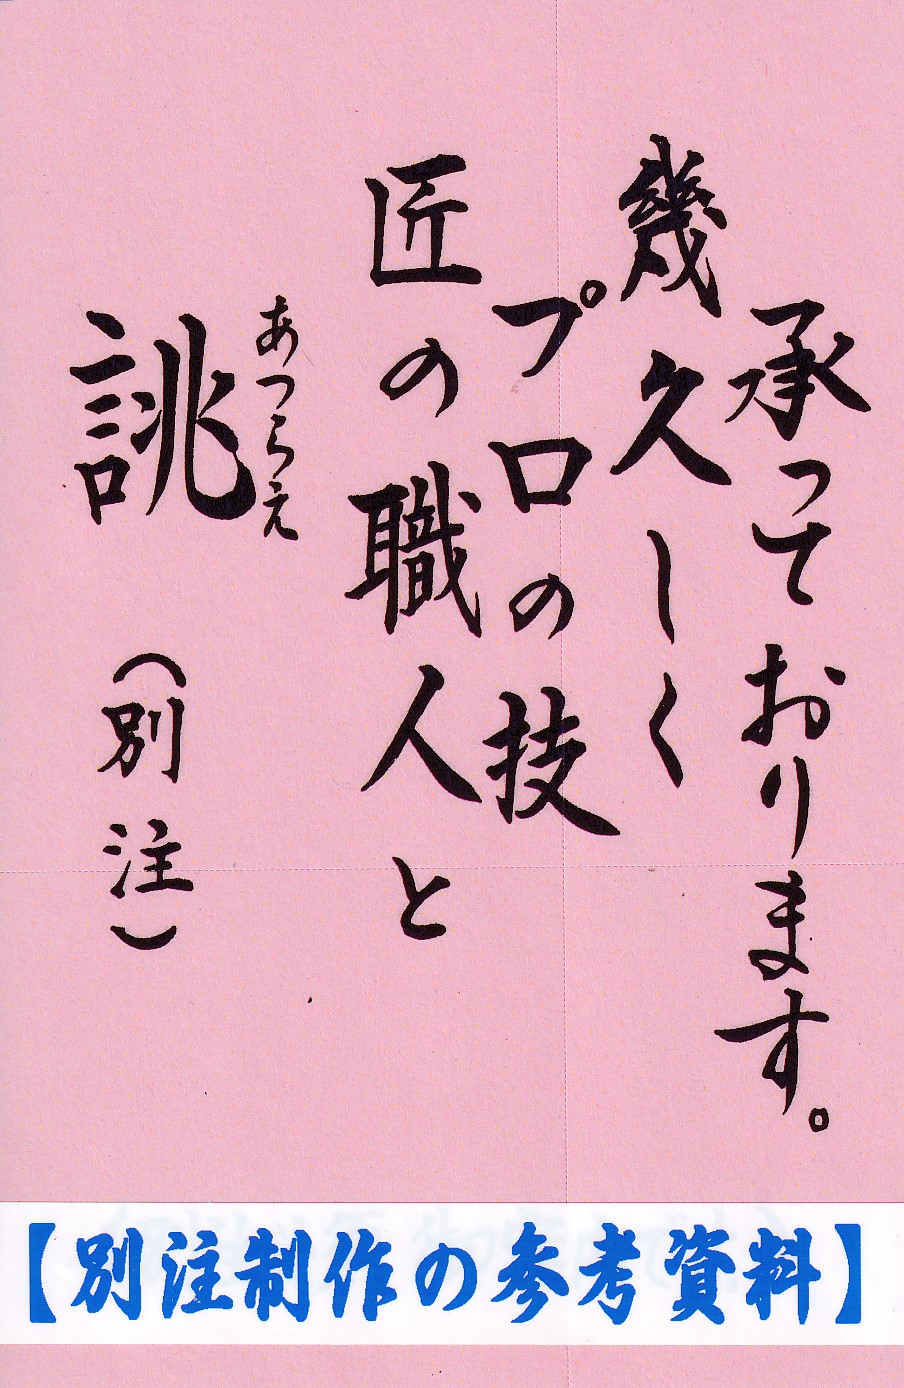 誂（別注）
あつらえ
匠の職人と
プロの技
幾久しく
承っております。
【別注制作の参考資料】